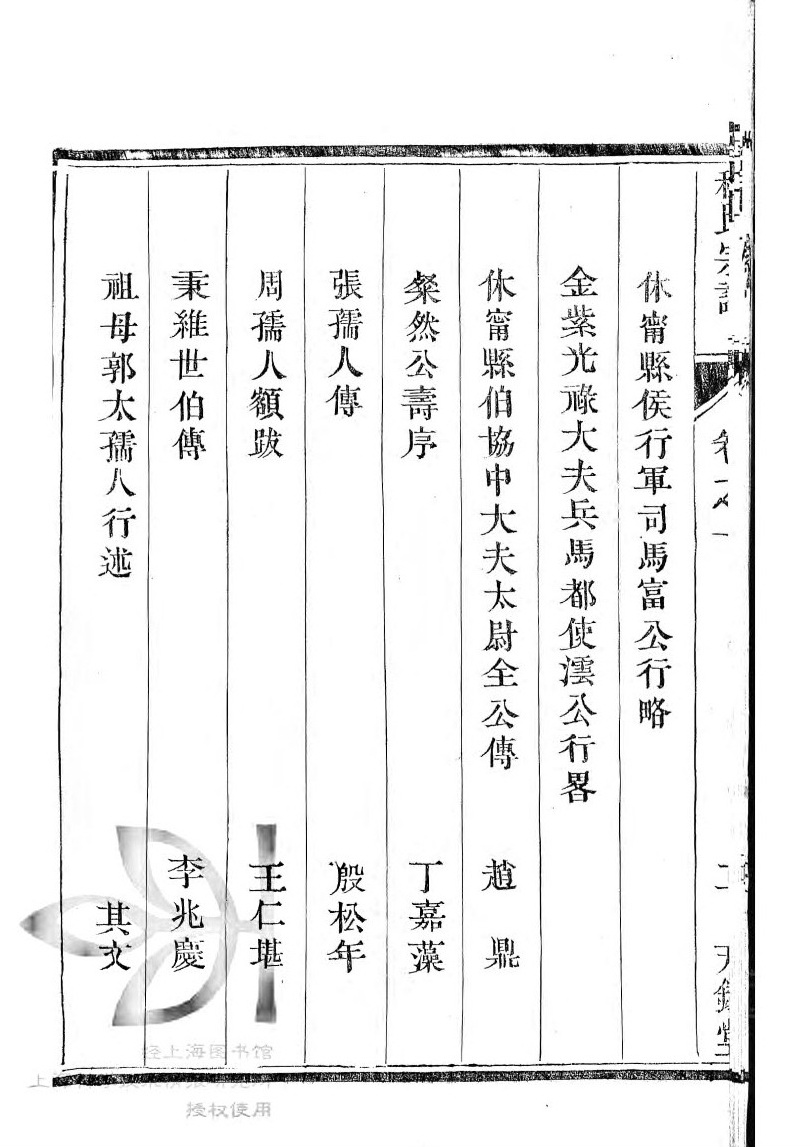 程氏宗譜
卷之一
二
休甯縣侯行軍司馬富公行略
金紫光祿大夫兵馬都使澐公行畧
休甯縣伯協中大夫太尉全公傳 趙鼎
粲然公壽序 丁嘉藻
張孺人傳 殷松年
周孺人額跋 王仁堪
秉維世伯傳 李兆慶
祖母郭太孺人行述 其文
经上海图书馆
上
授权使用